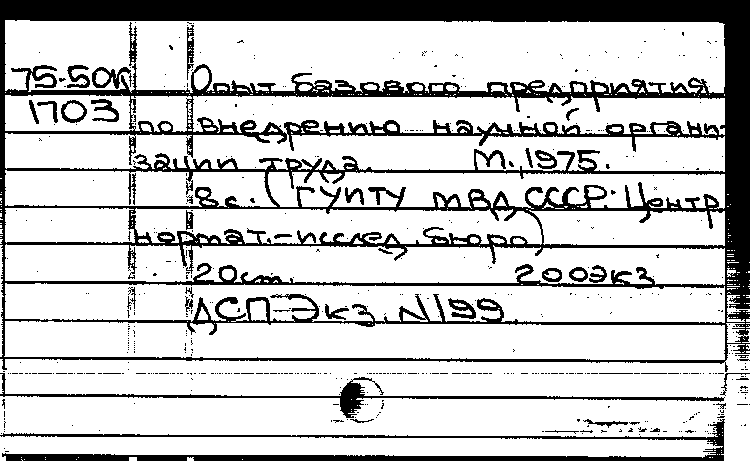 75-50К Опыт базового предприятия
1703 по внедрению научной органи-
зации труда. М., 1975.
8 с. (ГУИТУ МВД СССР. Центр.
нормат.-исслед. бюро)
20 см. 200 экз.
ДСП Экз. №199.